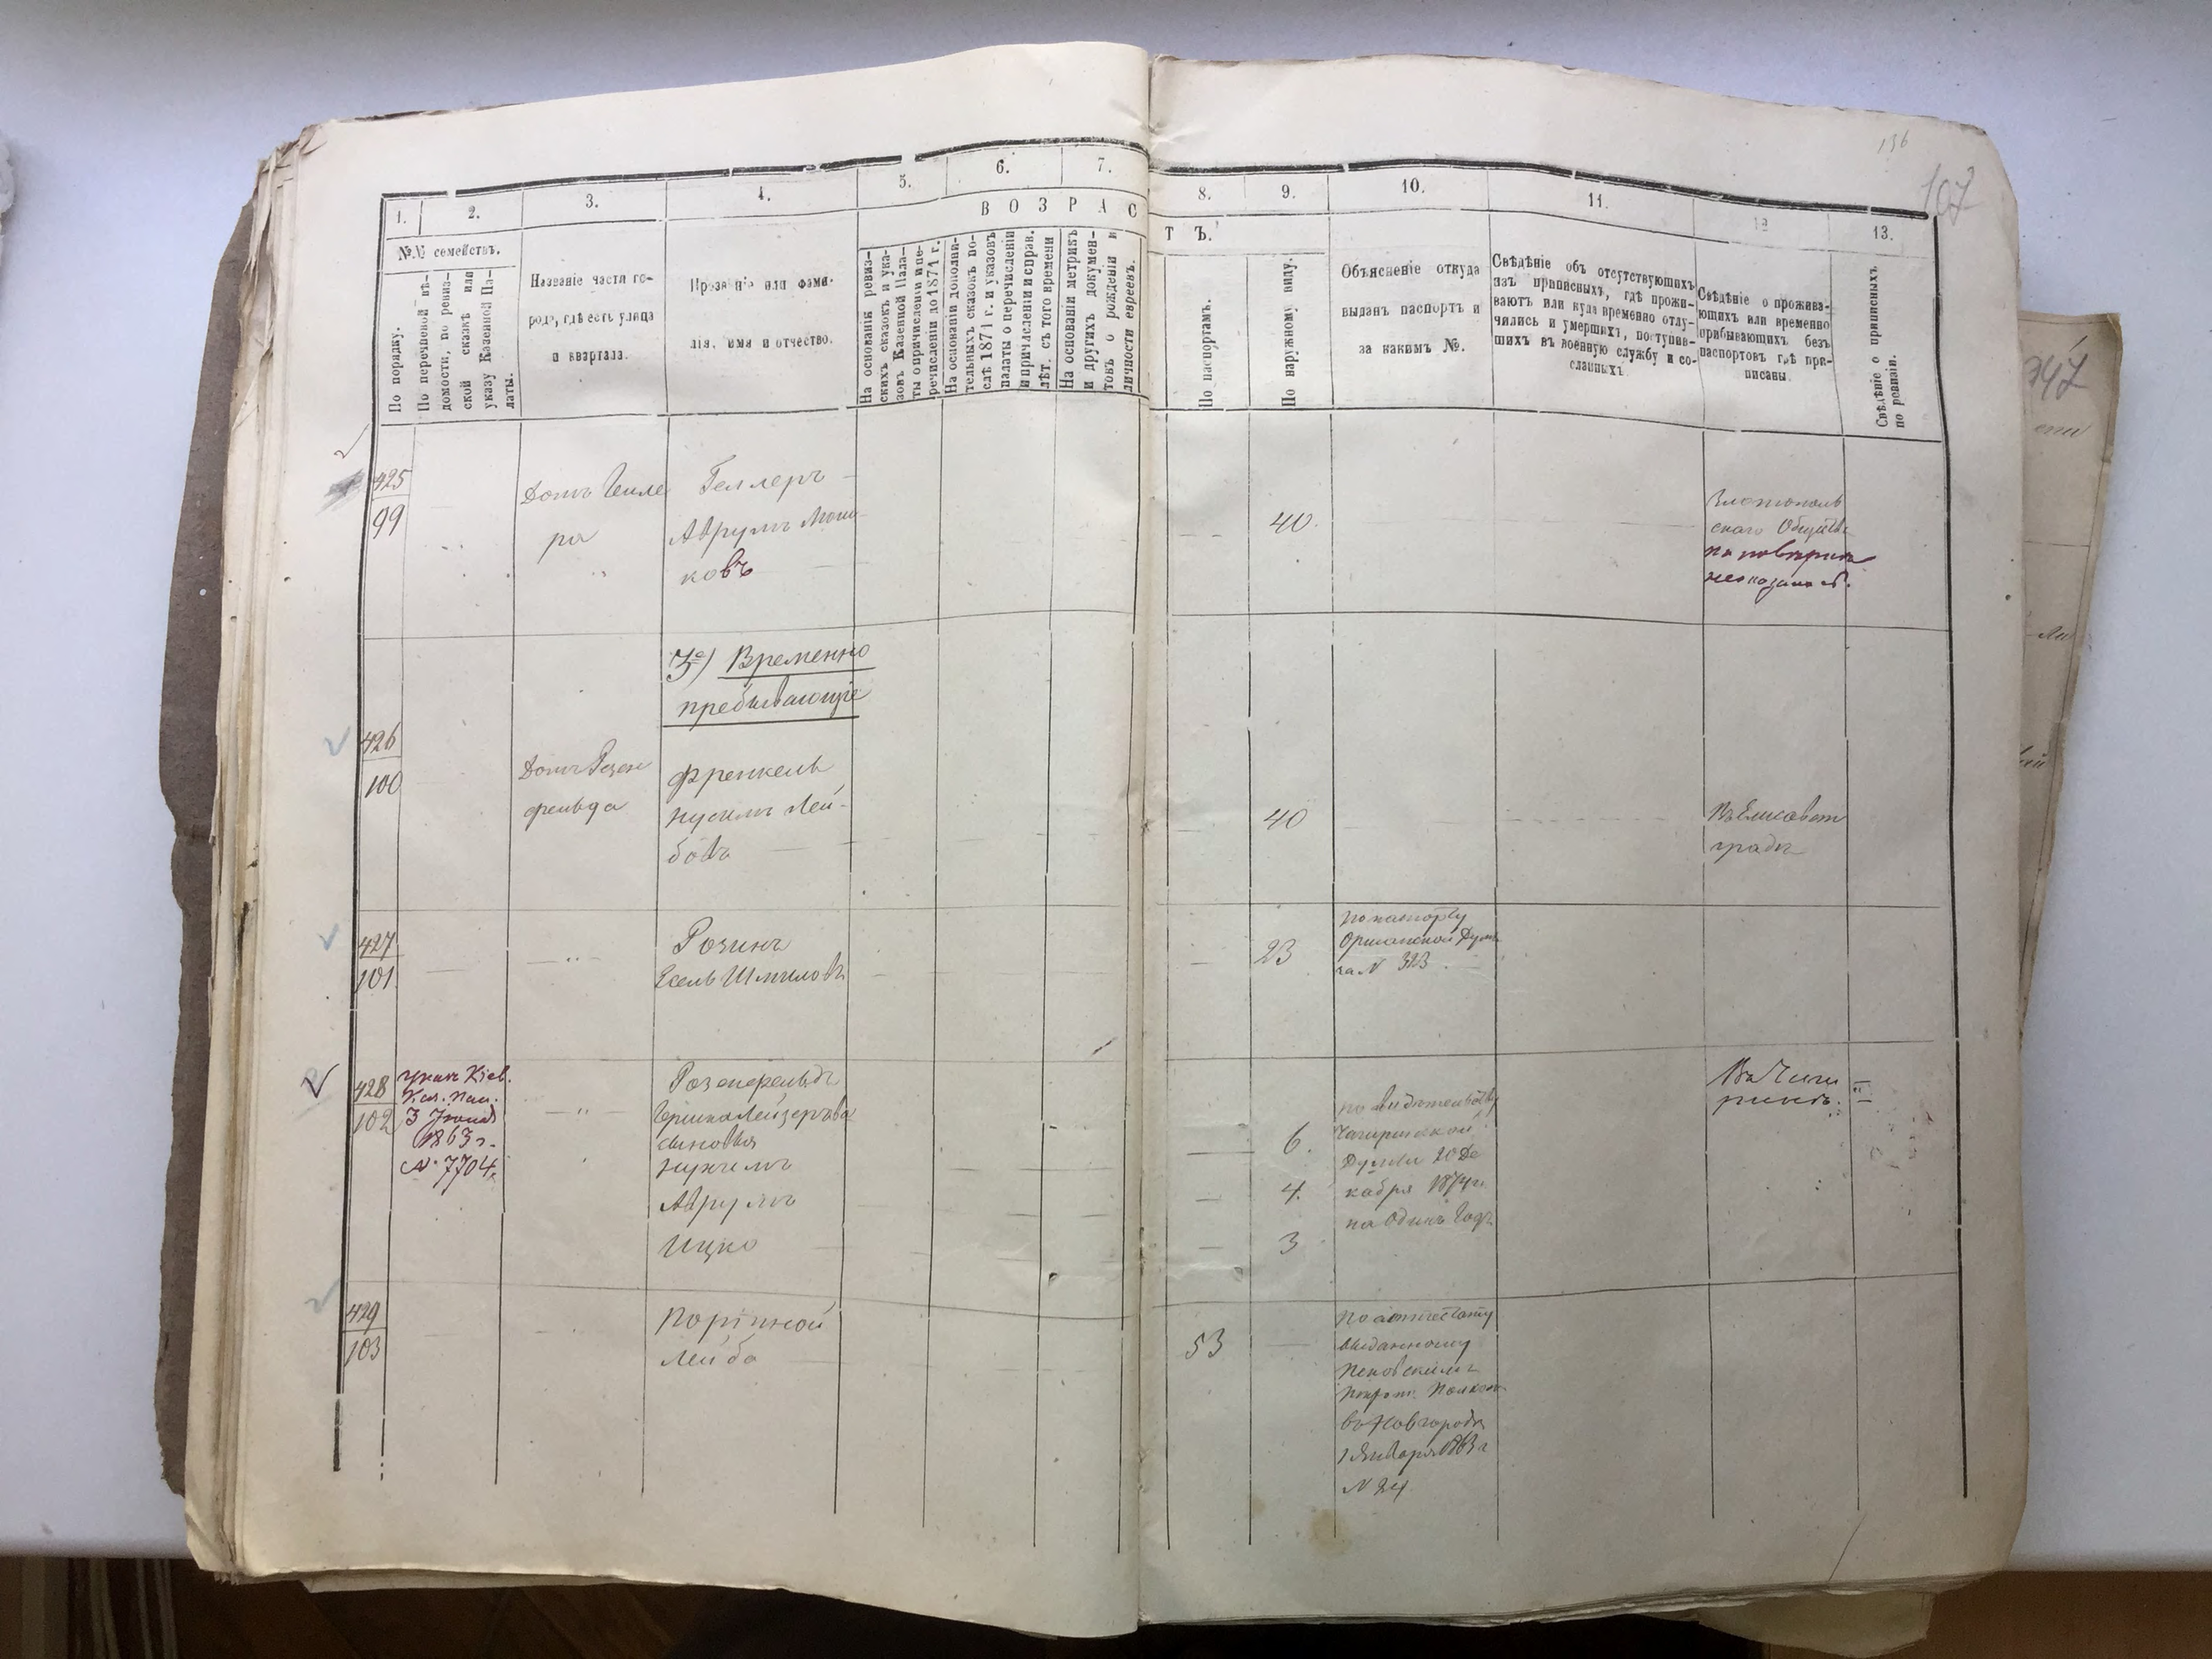 156
107
1.
2.
3.
4.
5.
6.
7.
8.
9.
10.
11.
12
13.
В О З Р А С
Т Ъ.
№№ семействъ.
По порядку.
По перечневой вѣ-
домости, по ревиз-
ской сказкѣ или
указу Казенной Па-
латы.
Названіе части го-
рода, гдѣ есть улица
и кварталъ.
Прозваніе или фами-
лія, имя и отчество.
На основаніи ревиз-
скихъ сказокъ и ука-
зовъ Казенной Пала-
ты о причисленіи и пе-
речисленіи до 1871 г.
На основаніи дополни-
тельныхъ сказокъ по-
слѣ 1871 г. и указовъ
палаты о перечисленіи
и причисленіи и справ.
лѣт. съ того времени
На основаніи метрикъ
и другихъ докумен-
товъ о рожденіи и
личности евреевъ.
По паспортамъ.
По наружному виду.
Объясненіе откуда
выданъ паспортъ и
за какимъ №.
Свѣдѣніе объ отсутствующихъ
изъ приписныхъ, гдѣ прожи-
ваютъ или куда временно отлу-
чились и умершихъ, поступив-
шихъ въ военную службу и со-
сланныхъ
Свѣдѣніе о прожива-
ющихъ или временно
прибывающихъ безъ
паспортовъ гдѣ при-
писаны.
Свѣдѣніе о приписныхъ
по ревизіи.
425
99
Домъ Гелле
ра
Геллеръ
Аврумъ Мош
ковъ
40.
Златополь
скаго Общества
3е) Временно
пребывающіе
426
100
Домъ Розен
фельда
Френкель
Нусимъ Лей-
бовъ
40
Въ Елисавет
градѣ
427
101
"
Розинъ
Есель Шмилов
23
по паспорту
Оршанской Думы
за N 323.
428
102
указъ Кіев.
Каз. Пал.
3 Іюня
1863 г.
№ 7704
"
Розенфельдъ
Гершка Лейзерова
сыновья
Нухимъ
Аврумъ
Ицко
6.
4.
3
по свидѣтельству
Чигиринской
Думы 20 Де
кабря 1874 г.
на Одинъ Годъ
Въ Чиги
ринѣ.
429
103
Портной
Лейба
53
по аттестату
выданному
Псковскимъ
Пехот. Полком
въ Новгородѣ
1 Января 1863 г
N 24